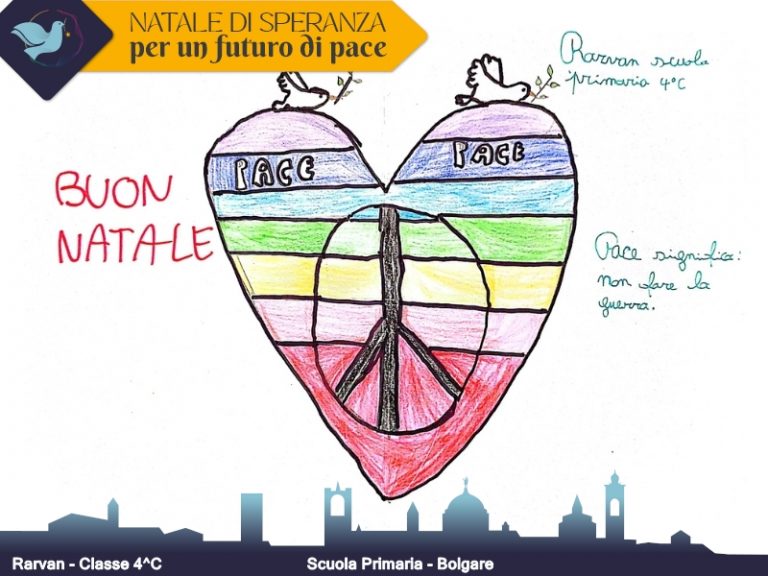 NATALE DI SPERANZA
per un futuro di pace
Rarvan scuola
primaria 4°C
PACE
PACE
BUON
NATALE
Pace significa:
non fare la
guerra.
Rarvan - Classe 4^C
Scuola Primaria - Bolgare